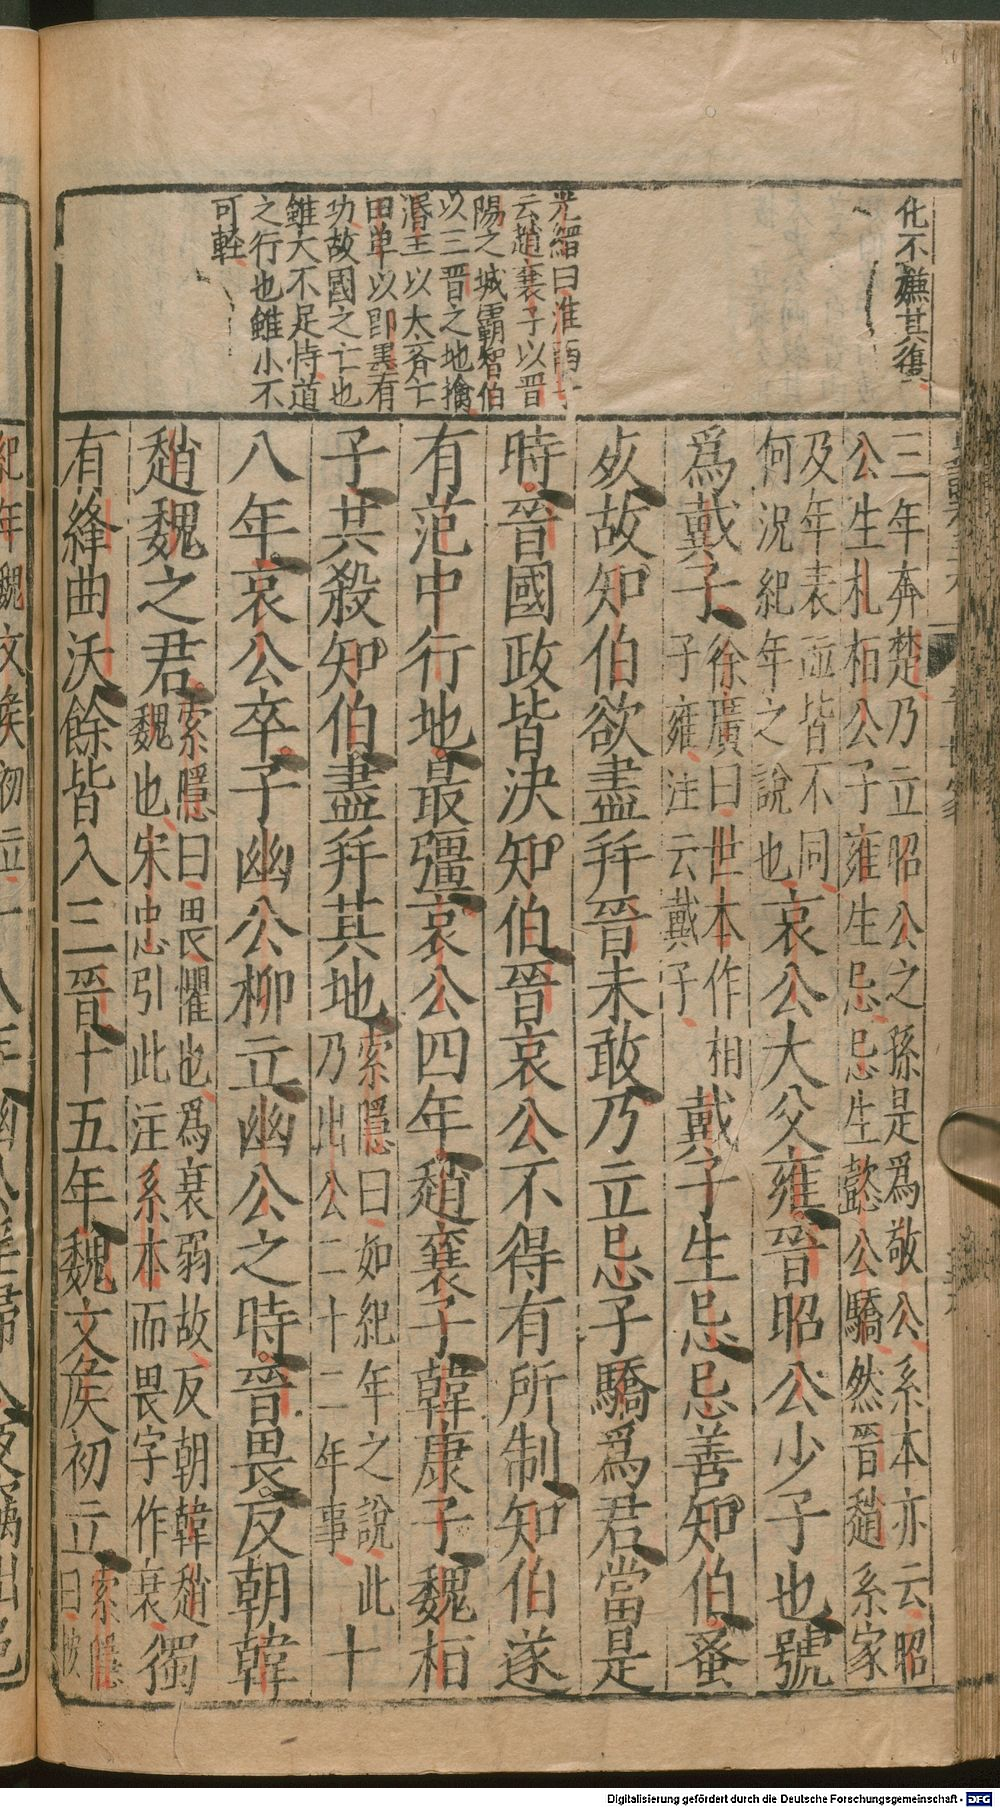 化不嫌其復
光縉曰淮南子
云趙襄子以晉
陽之城霸智伯
以三晉之地擒
湣王以大齊亡
田單以即墨有
功故國之亡也
雖大不足恃道
之行也雖小不
可輕
三年奔楚乃立昭公之孫是爲敬公系本亦云昭
公生札桓公子雍生忌忌生懿公驕然晉趙系家
及年表並皆不同
何況紀年之說也
哀公大父雍晉昭公少子也號
爲戴子
徐廣曰世本作相
子雍注云戴子
戴子生忌忌善知伯蚤
死故知伯欲盡幷晉未敢乃立忌子驕爲君當是
時晉國政皆決知伯晉哀公不得有所制知伯遂
有范中行地最彊哀公四年趙襄子韓康子魏桓
子共殺知伯盡幷其地
索隱曰如紀年之說此
乃出公二十二年事
十
八年哀公卒子幽公柳立幽公之時晉畏反朝韓
趙魏之君
索隱曰畏懼也爲衰弱故反朝韓趙
魏也宋忠引此注系本而畏字作衰
獨
有絳曲沃餘皆入三晉十五年魏文侯初立
索隱
曰按
Digitalisierung gefördert durch die Deutsche Forschungsgemeinschaft - DFG